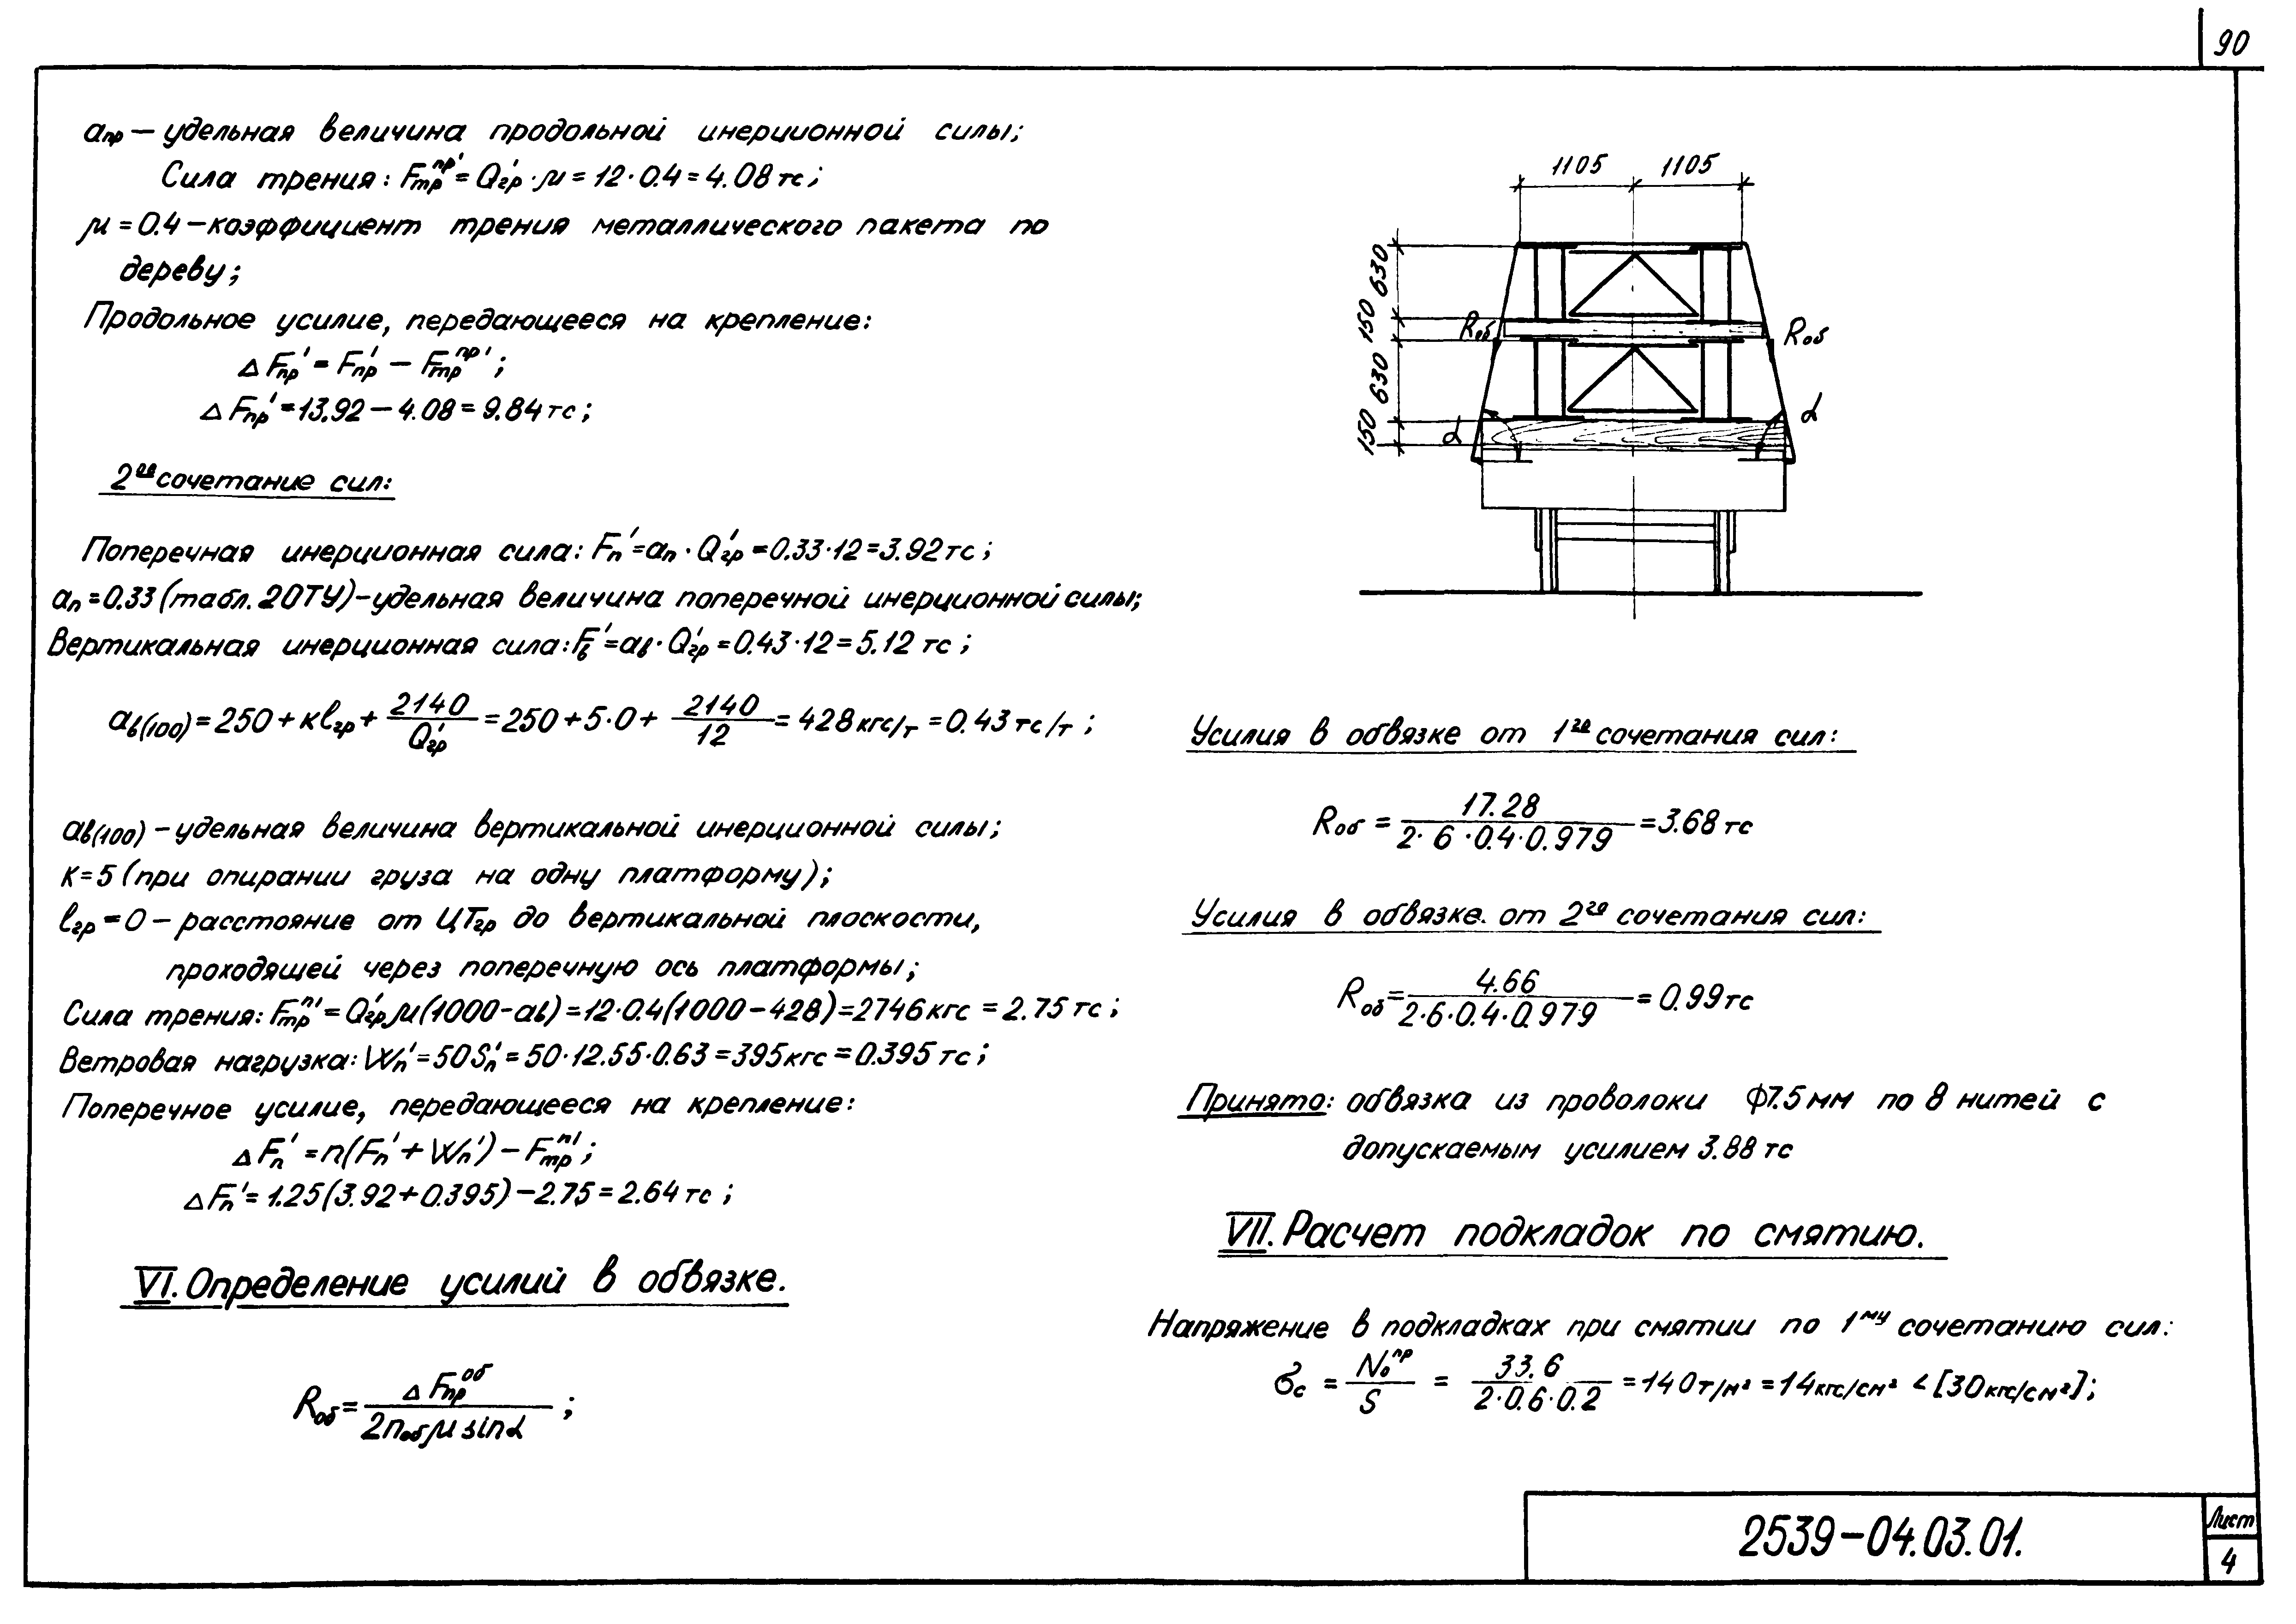 90
aпр — удельная величина продольной инерционной силы;
Сила трения: Fтр^пр' = Q'гр · μ = 12 · 0.4 = 4.08 тс;
μ = 0.4 — коэффициент трения металлического пакета по
дереву;
Продольное усилие, передающееся на крепление:
Δ Fпр' = Fпр' — Fтр^пр';
Δ Fпр' = 13.92 — 4.08 = 9.84 тс;
2ое сочетание сил:
Поперечная инерционная сила: Fп' = aп · Q'гр = 0.33 · 12 = 3.92 тс;
aп = 0.33 (табл. 20ТУ) — удельная величина поперечной инерционной силы;
Вертикальная инерционная сила: Fв' = aв · Q'гр = 0.43 · 12 = 5.12 тс;
aв(100) = 250 + кℓгр + 2140/Q'гр = 250 + 5·0 + 2140/12 = 428 кгс/т = 0.43 тс/т;
aв(100) — удельная величина вертикальной инерционной силы;
к = 5 (при опирании груза на одну платформу);
ℓгр = 0 — расстояние от ЦТгр до вертикальной плоскости,
проходящей через поперечную ось платформы;
Сила трения: Fтр^п' = Q'гр μ(1000 - aв) = 12 · 0.4(1000 — 428) = 2746 кгс = 2.75 тс;
Ветровая нагрузка: Wп' = 50Sп' = 50 · 12.55 · 0.63 = 395 кгс = 0.395 тс;
Поперечное усилие, передающееся на крепление:
Δ Fп' = n(Fп' + Wп') — Fтр^п';
Δ Fп' = 1.25(3.92 + 0.395) — 2.75 = 2.64 тс;
VI. Определение усилий в обвязке.
Rоб = Δ Fпр^об / 2nоб μ sin α;
1105 1105
630
150
630
150
Rоб Rоб
α α
Усилия в обвязке от 1го сочетания сил:
Rоб = 17.28 / 2 · 6 · 0.4 · 0.979 = 3.68 тс
Усилия в обвязке от 2го сочетания сил:
Rоб = 4.66 / 2·6·0.4·0.979 = 0.99 тс
Принято: обвязка из проволоки ф7.5 мм по 8 нитей с
допускаемым усилием 3.88 тс
VII. Расчет подкладок по смятию.
Напряжение в подкладках при смятии по 1му сочетанию сил:
σс = No^пр / S = 33.6 / 2·0.6·0.2 = 140 т/м² = 14 кгс/см² < [30 кгс/см²];
2539-04.03.01.
Лист
4